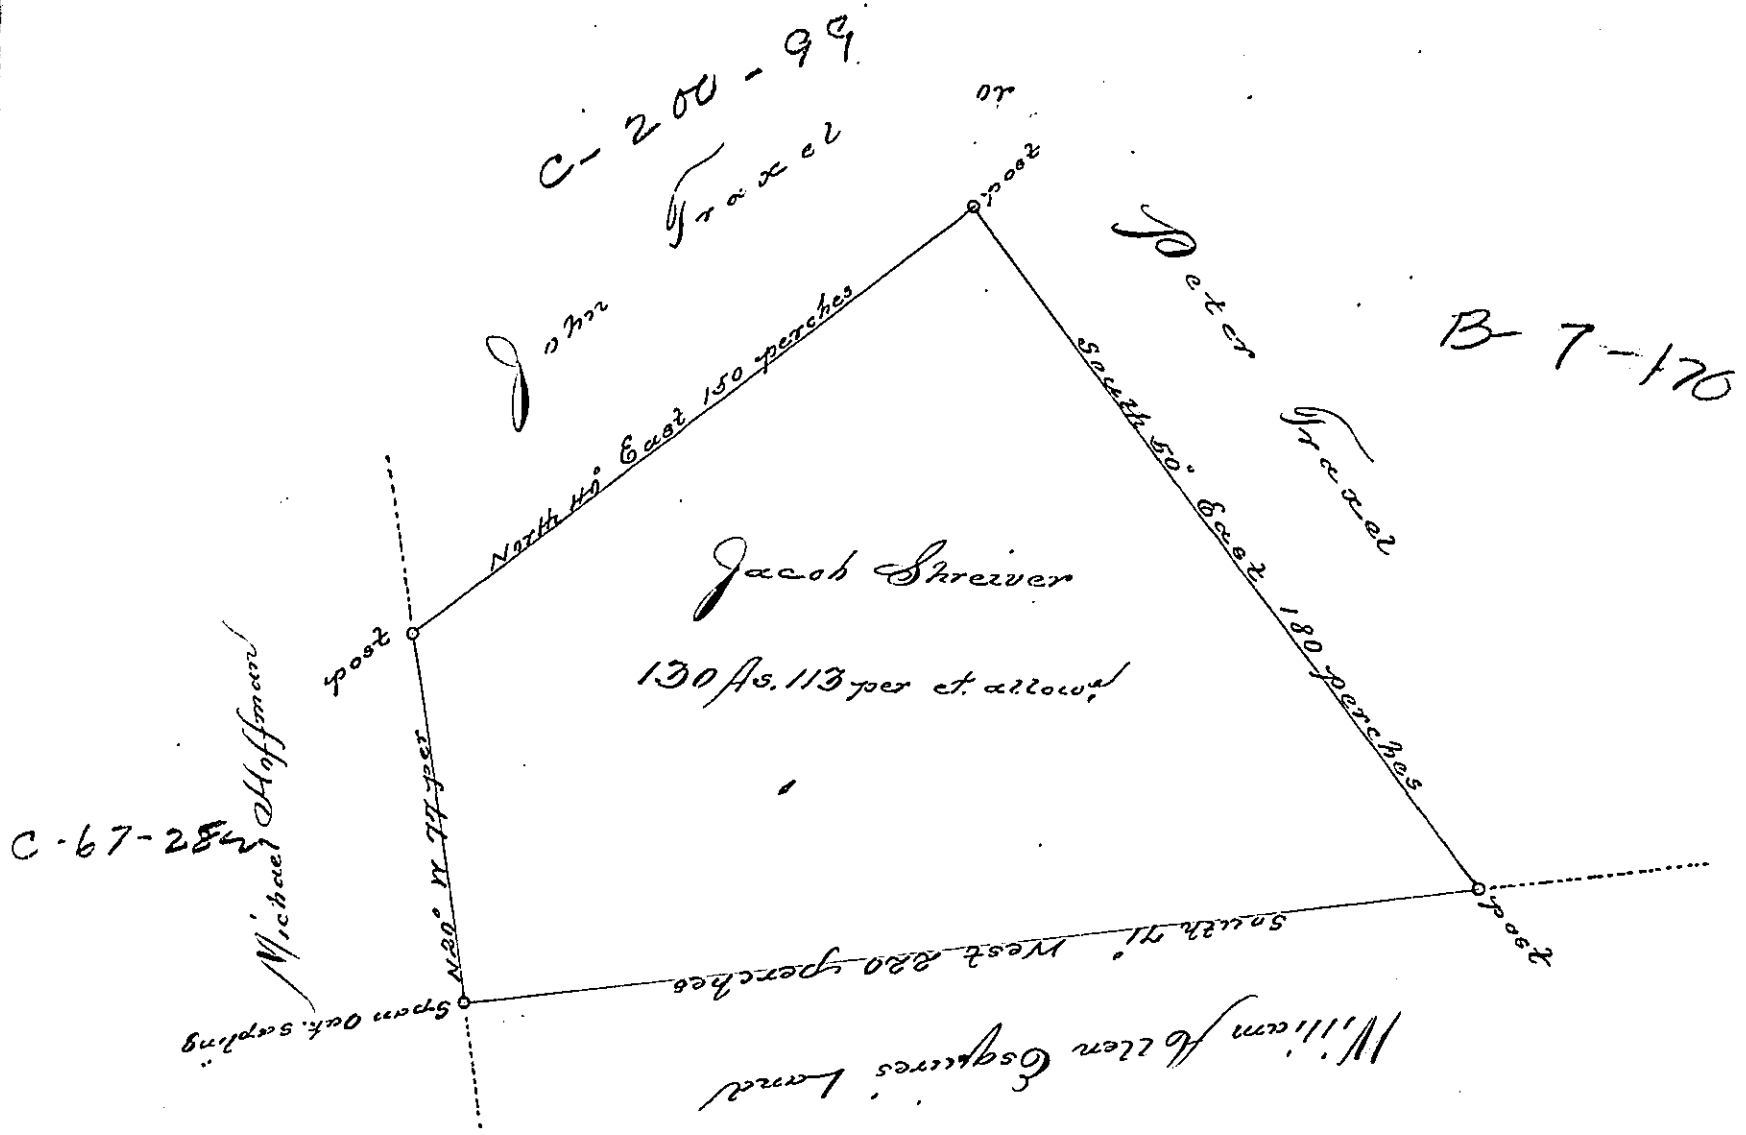 C-200-99
John Traxel
or
post
Peter Traxel
B-7-170
North 40° East 150 perches
South 50° East 180 perches
post
Jacob Shreiver
130 As. 113 per ct. allow.d
Michael Hoffman
N20° W 77 per
post
South 71° West 220 perches
Span Oak sapling
William Allen Esquires Land